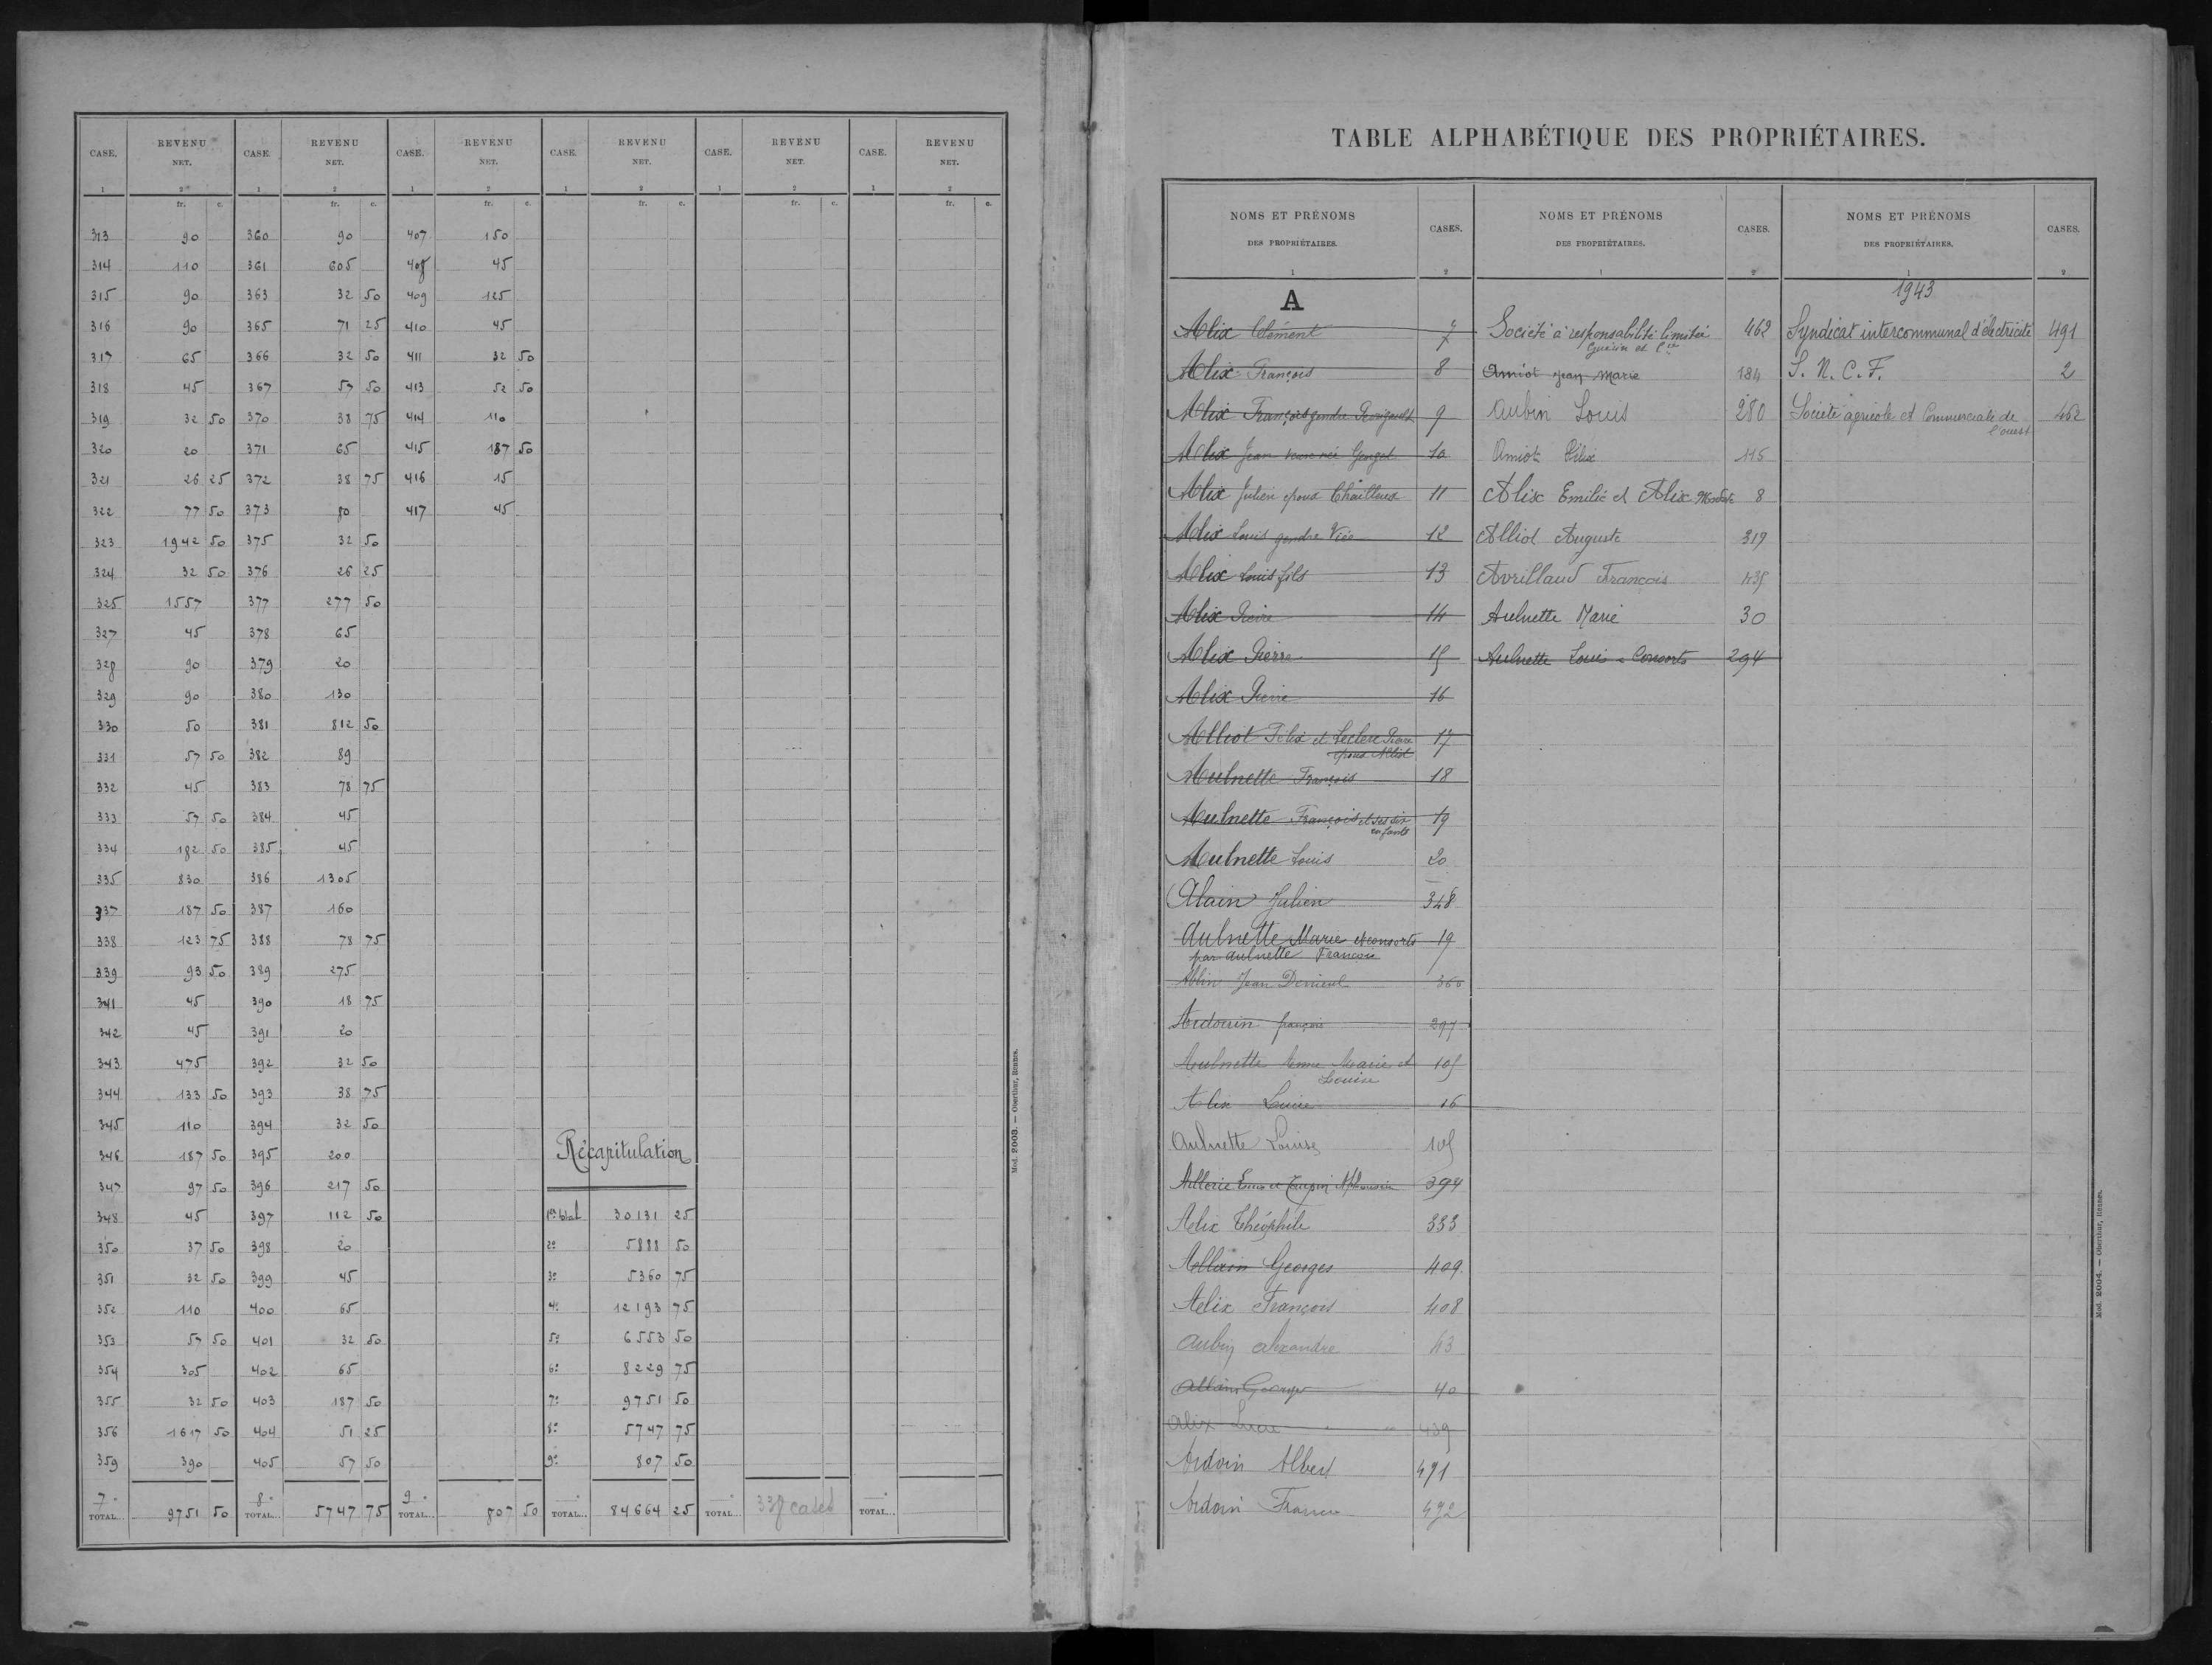 CASE. REVENU NET. CASE. REVENU NET. CASE. REVENU NET. CASE. REVENU NET. CASE. REVENU NET. CASE. REVENU NET.
1 2 1 2 1 2 1 2 1 2 1 2
fr. c. fr. c. fr. c. fr. c. fr. c. fr. c.
313 90 360 90 407 150
314 110 361 605 408 45
315 90 363 32 50 409 125
316 90 365 71 25 410 45
317 65 366 32 50 411 32 50
318 45 367 57 50 413 52 50
319 32 50 370 38 75 414 110
320 20 371 65 415 187 50
321 26 25 372 38 75 416 15
322 77 50 373 80 417 45
323 1942 50 375 32 50
324 32 50 376 26 25
325 1557 377 277 50
327 45 378 65
328 90 379 20
329 90 380 130
330 50 381 812 50
331 57 50 382 89
332 45 383 78 75
333 57 50 384 45
334 182 50 385 45
335 830 386 1305
337 187 50 387 160
338 123 75 388 78 75
339 93 50 389 275
341 45 390 18 75
342 45 391 20
343 475 392 32 50
344 133 50 393 38 75
345 110 394 32 50
346 187 50 395 200
Récapitulation
347 97 50 396 217 50
348 45 397 112 50 1er total 30131 25
350 37 50 398 20 2e 5888 50
351 32 50 399 45 3e 5360 75
352 110 400 65 4e 12193 75
353 57 50 401 32 50 5e 6553 50
354 305 402 65 6e 8229 75
355 32 50 403 187 50 7e 9751 50
356 1617 50 404 51 25 8e 5747 75
359 390 405 57 50 9e 807 50
7e TOTAL... 9751 50 8e TOTAL... 5747 75 9e TOTAL... 807 50 TOTAL... 84664 25 TOTAL... 338 cases TOTAL...
Mod. 2003. — Oberthur, Rennes.
TABLE ALPHABÉTIQUE DES PROPRIÉTAIRES.
NOMS ET PRÉNOMS DES PROPRIÉTAIRES. CASES. NOMS ET PRÉNOMS DES PROPRIÉTAIRES. CASES. NOMS ET PRÉNOMS DES PROPRIÉTAIRES. CASES.
1 2 1 2 1 2
A
Alix Clément 7
Alix François 8
Alix François gendre 9
Alix Jean 10
Alix Julien époux 11
Alix Louis gendre Viée 12
Alix Louis fils 13
Alix Pierre 14
Alix Pierre 15
Alix Pierre 16
Alliot Félix et Leclerc Pierre 17
époux Alliot
Aulnette François 18
Aulnette François et ses six 19
enfants
Aulnette Louis 20
Alain Julien 348
Aulnette Marie et consorts 19
par aulnette François
Jean 360
Ardouin françois 297
Aulnette Anne Marie et 105
Louise
Alix 16
Aulnette Louise 105
394
Alix Théophile 333
Allain Georges 409
Alix François 408
Aubin alexandre 43
Allain Georges 40
alix 439
Ardoin Albert 491
Ardoin 492
Société à responsabilité limitée 462
Guérin et Cie
Amiot Jean Marie 184
Aubin Louis 280
Amiot Félix 115
Alix Emilie et Alix 8
Alliot Auguste 319
Avrillaud François 435
Aulnette Marie 30
Aulnette Louis & Consorts 294
1943
Syndicat intercommunal d'électricité 491
S. N. C. F. 2
Société agricole et Commerciale de 462
l'ouest
Mod. 2004. — Oberthur, Rennes.